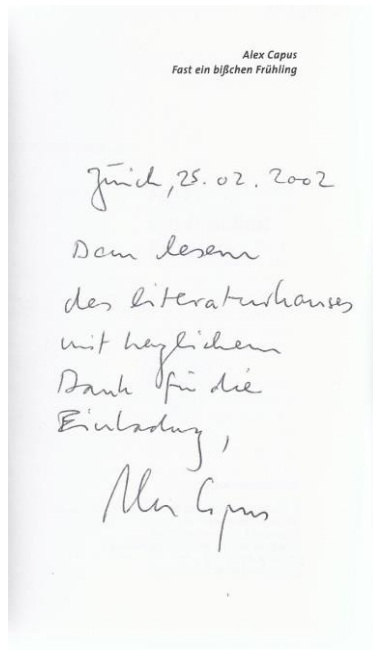 Alex Capus
Fast ein bißchen Frühling
Zürich, 25.02.2002
Den Lesern
des Literaturhauses
mit herzlichem
Dank für die
Einladung,
Alex Capus